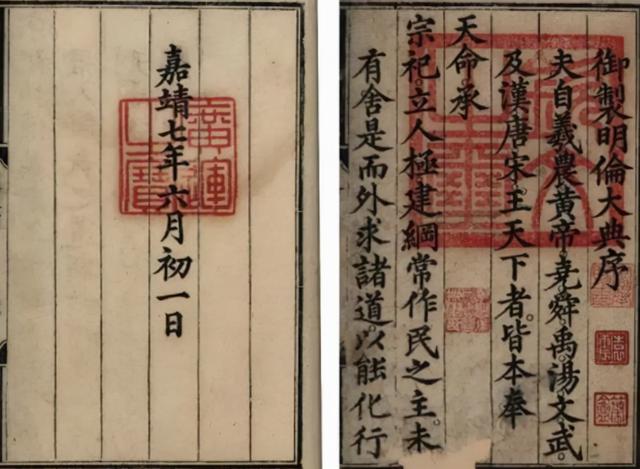 御製明倫大典序
夫自羲農黃帝。堯舜禹。湯文武。
及漢唐宋。王天下者。皆本奉
天命承
宗祀。立人極建綱常作民之主。未
有舍是而外求諸道。以能化行
嘉靖七年六月初一日
廣運之寶